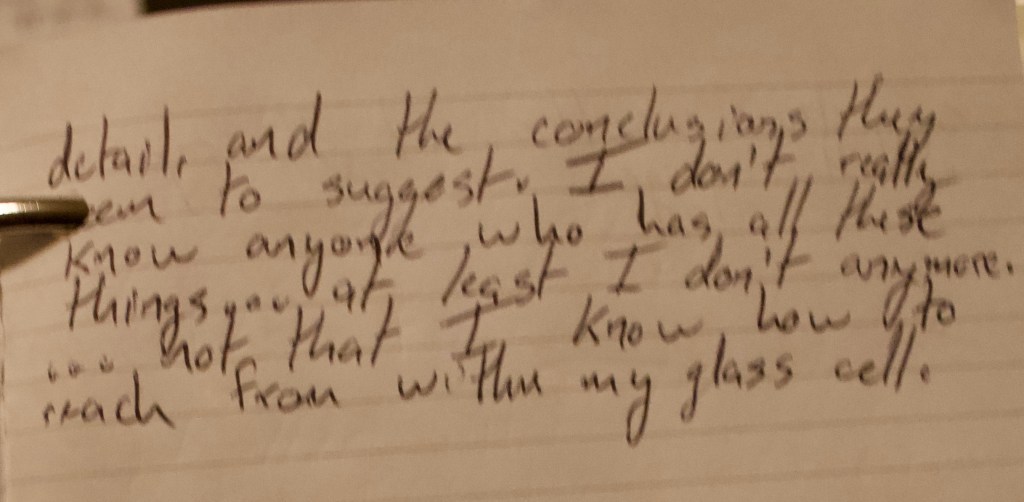 detail, and the conclusions they
seem to suggest. I don't really
know anyone who has all these
things... at least I don't anymore.
... not that I know how to
reach from within my glass cell.